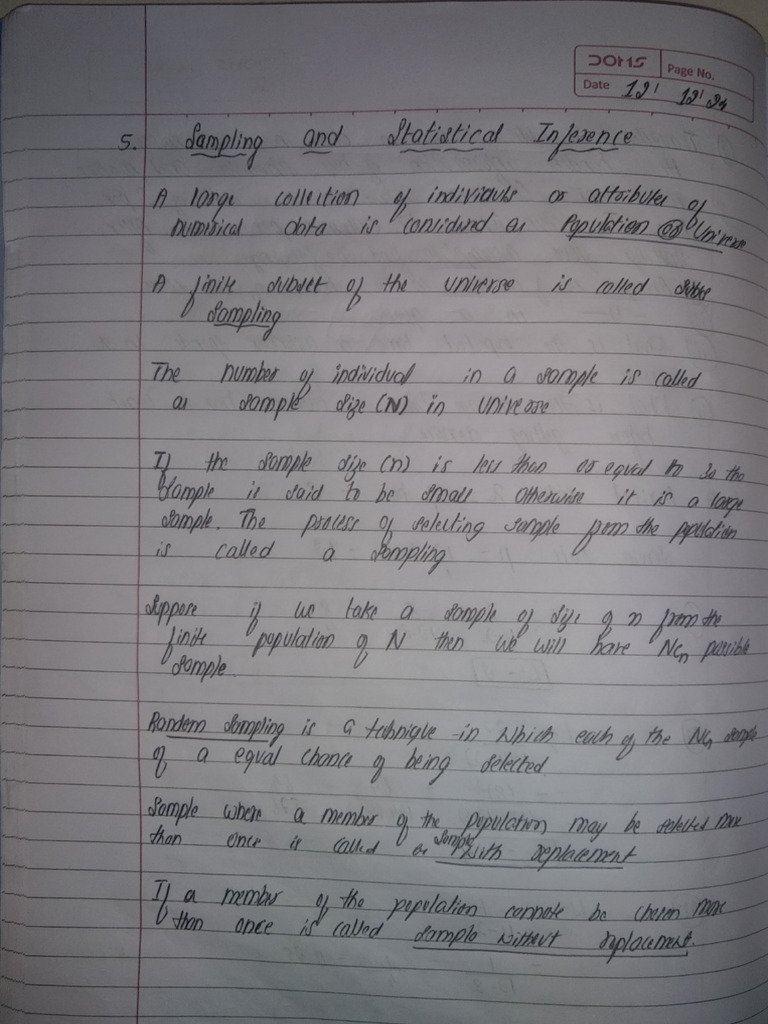 DOMS
Page No.
Date 12' 12' 24
5. Sampling and Statistical Inference
A large collection of individuals or attributes of
numirical data is considered as Population (or) Universe
A finite subset of the universe is called
Sampling
The number of individual in a sample is called
as sample size (N) in universe
If the sample size (n) is less than or equal to 30 the
sample is said to be small otherwise it is a large
sample. The process of selecting sample from the population
is called a sampling
Suppose if we take a sample of size of n from the
finite population of N then we will have NCn possible
sample.
Random Sampling is a technique in which each of the NCn sample
of a equal chance of being selected.
Sample where a member of the population may be selected more
than once is called as sample with replacement
If a member of the population cannote be chosen more
than once is called sample without replacement.